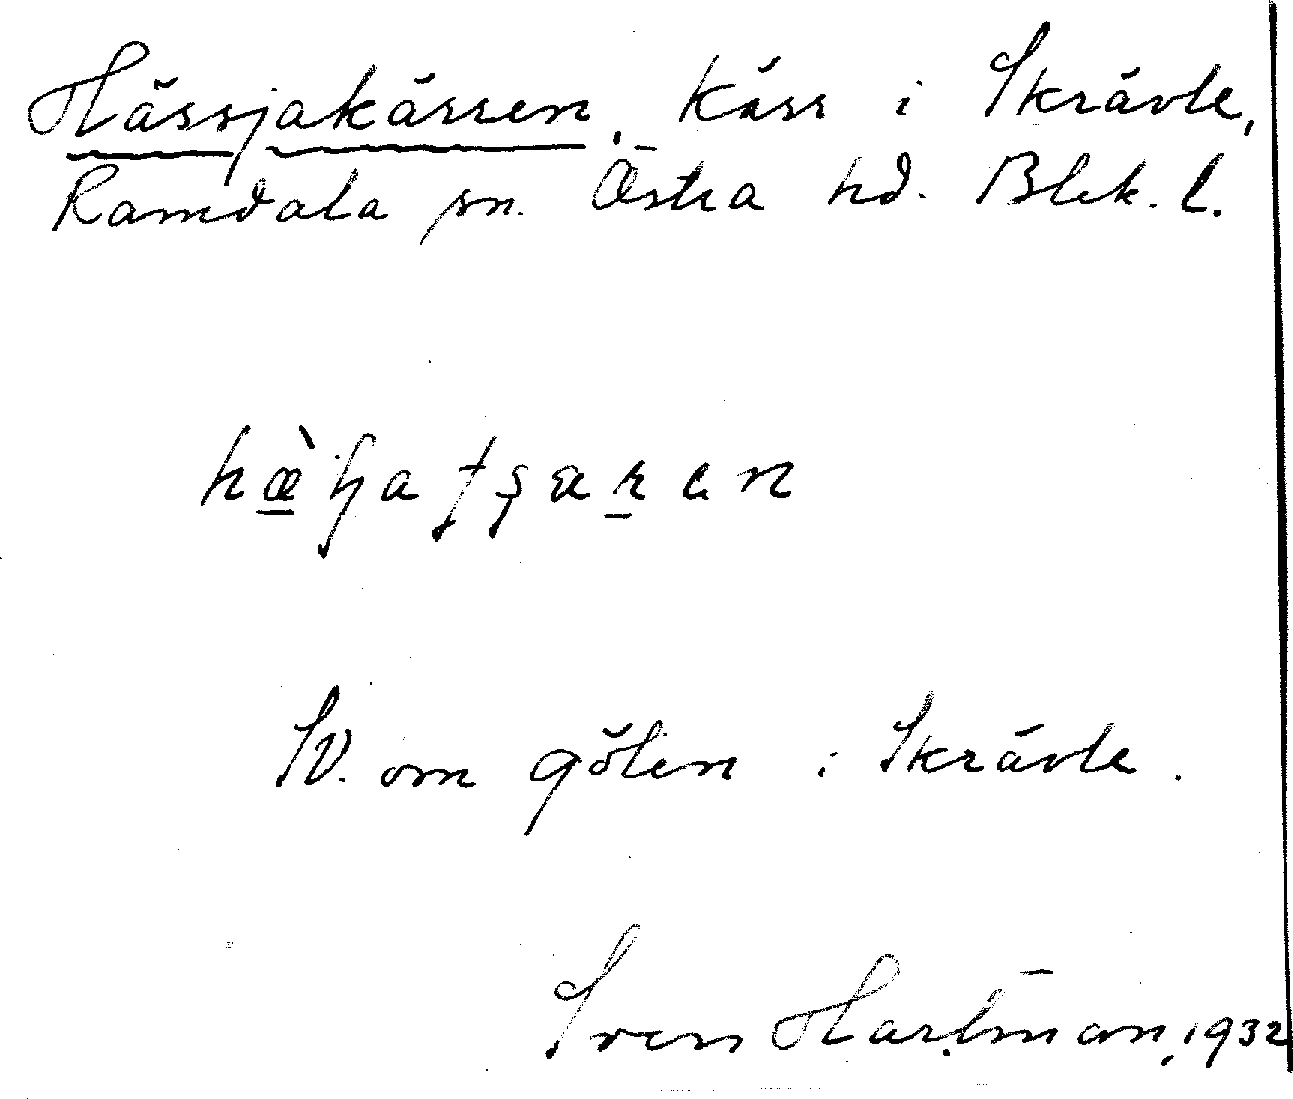 Hässjakärren, Kärr i Skrävle,
Ramdala sn. Östra hd. Blek. l.
SV. om gölen i Skrävle.
Sven Hartman, 1932